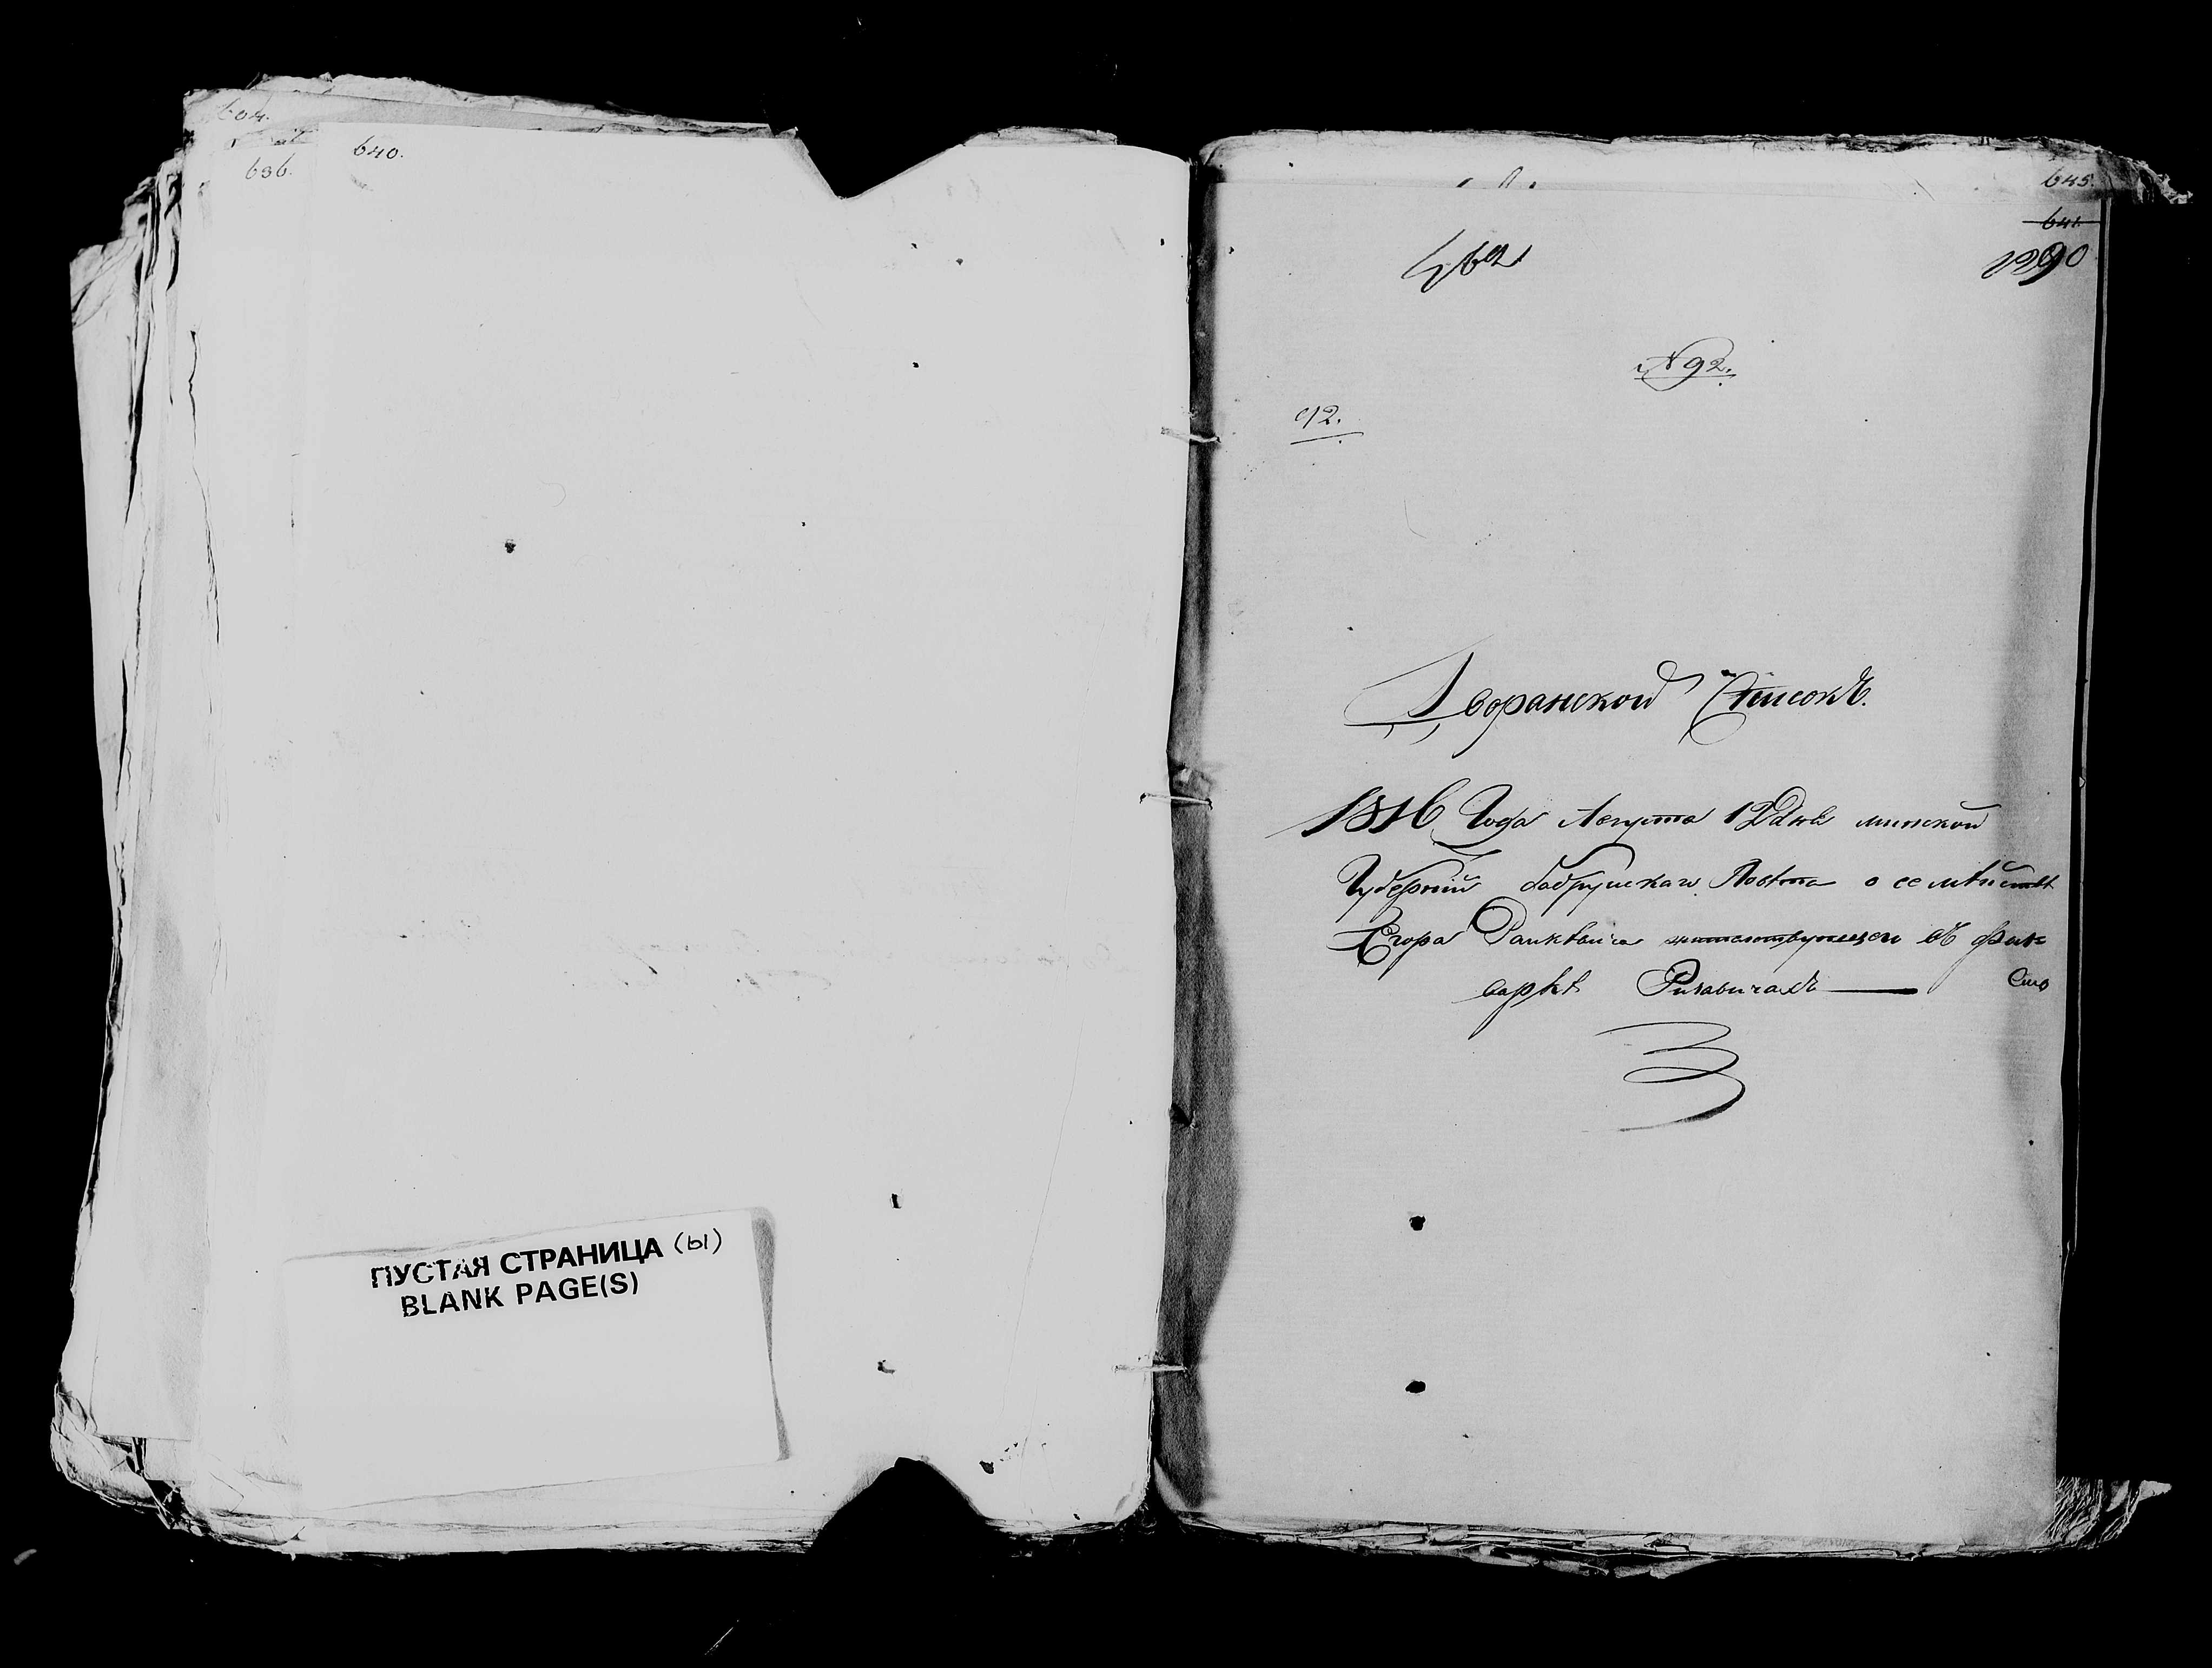 604.
636.
640.
ПУСТАЯ СТРАНИЦА (ы)
BLANK PAGE(S)
645.
641.
462
1290
№ 92.
92.
Дворанской Списокъ.
1816 Года Августа 12 Дня минской
Губерній бобруйскаго Повѣта о семѣйствѣ
Егора жительствующаго въ фол
варкѣ